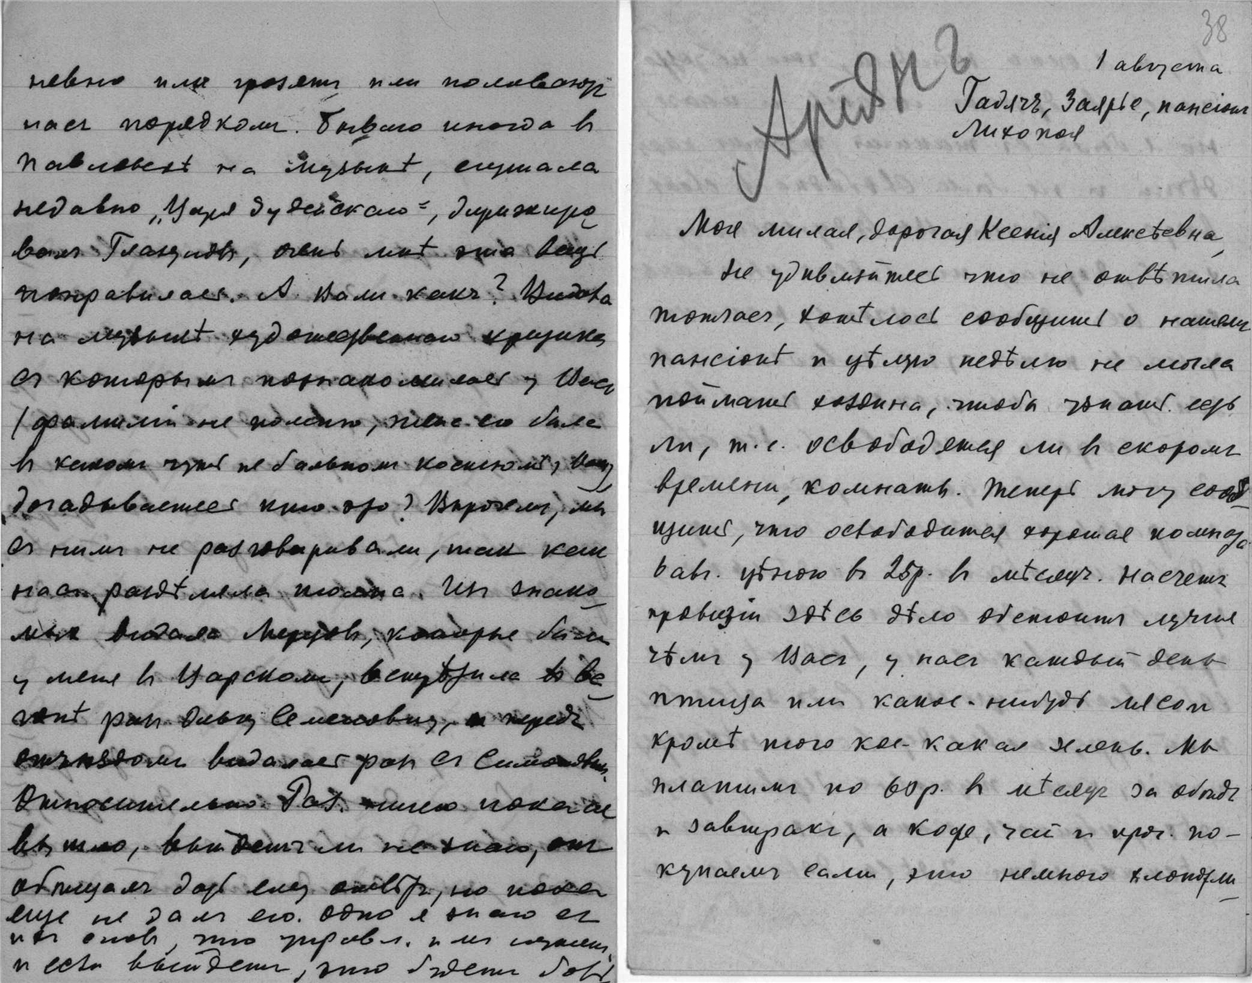 невно или грозетъ или поливаетъ
насъ порядкомъ. Бываю иногда въ
Павловскѣ на музыкѣ, слушала
недавно „Царя Іудейскаго", дирижиро
валъ Глазуновъ, очень мнѣ эта вещь
понравилась. А Вамъ какъ? Видѣла
на музыкѣ художественнаго критика
съ которымъ познакомилась у Васъ
(фамиліи не помню, жена его была
въ какомъ
догадываетесь кто это? Впрочемъ, мы
съ нимъ не разговаривали, такъ какъ
насъ раздѣляла толпа. Изъ знако-
мыхъ видала которые были
у меня въ Царскомъ, встрѣтила
разъ и передъ
отъѣздомъ видалась разъ съ
Относительно ничего пока не
вышло, выйдетъ ли не знаю, онъ
обѣщалъ дать ему отвѣтъ, но пока
еще не далъ его. Одно я знаю съ
его словъ, что
и если выйдетъ, это будетъ
38
Аридянъ
1 августа
Гадячъ, Заярье, пансіонъ
Лихопоя
Моя милая, дорогая Ксенія Алексѣевна,
Не удивляйтесь что не отвѣтила
тотчасъ, хотѣлось сообщить о нашемъ
пансіонѣ и цѣлую недѣлю не могла
поймать хозяина, чтобы узнать есть
ли, т.е. освободятся ли въ скоромъ
времени, комнаты. Теперь могу сооб-
щить, что освободится хорошая комната
въ авг. цѣною въ 25р. въ мѣсяцъ. Насчетъ
провизіи здѣсь дѣло обстоитъ лучше
чѣмъ у Васъ, у насъ каждый день
птица или какое-нибудь мясо и
кромѣ того кое-какая зелень. Мы
платимъ по 60р. въ мѣсяцъ за обѣдъ
и завтракъ, а кофе, чай и проч. по-
купаемъ сами, это немного хлопотли-